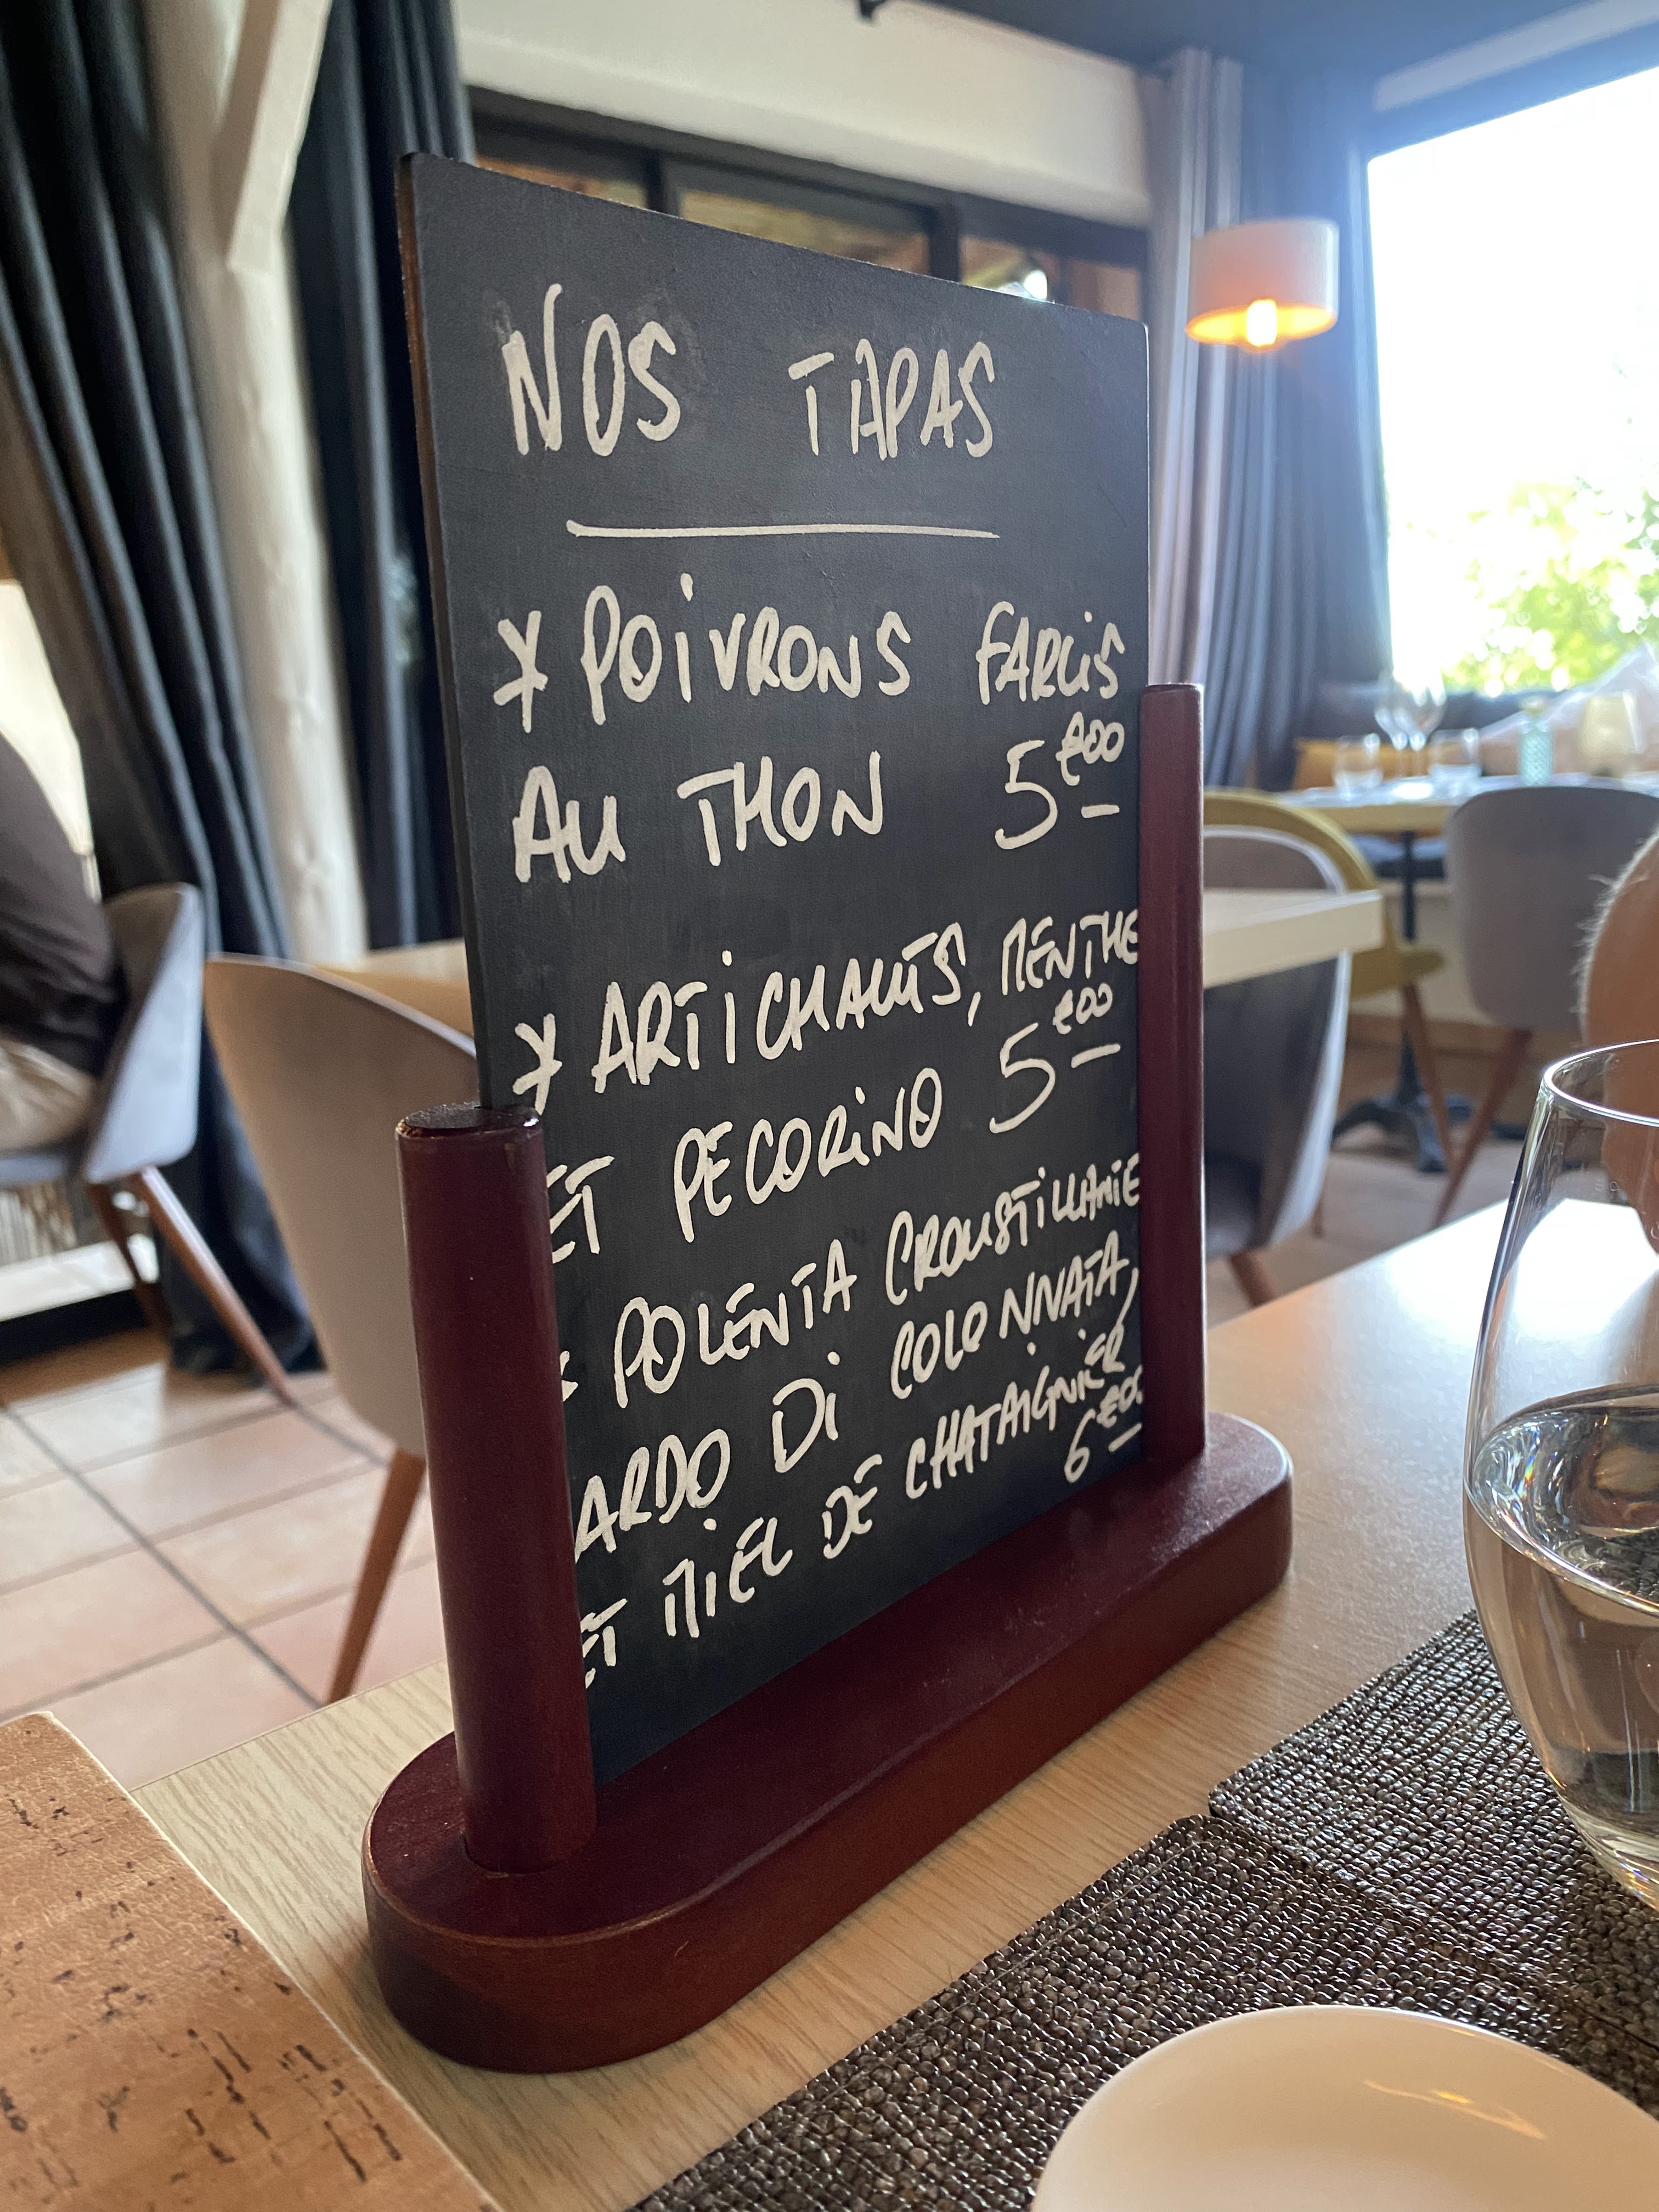 NOS TAPAS
* POIVRONS FARCIS
AU THON 5€00
* ARTICHAUTS, MENTHE
ET PECORINO 5€00
* POLENTA CROUSTILLANTE
ARDO DI COLONNATA,
ET MIEL DE CHATAIGNIER
6€00